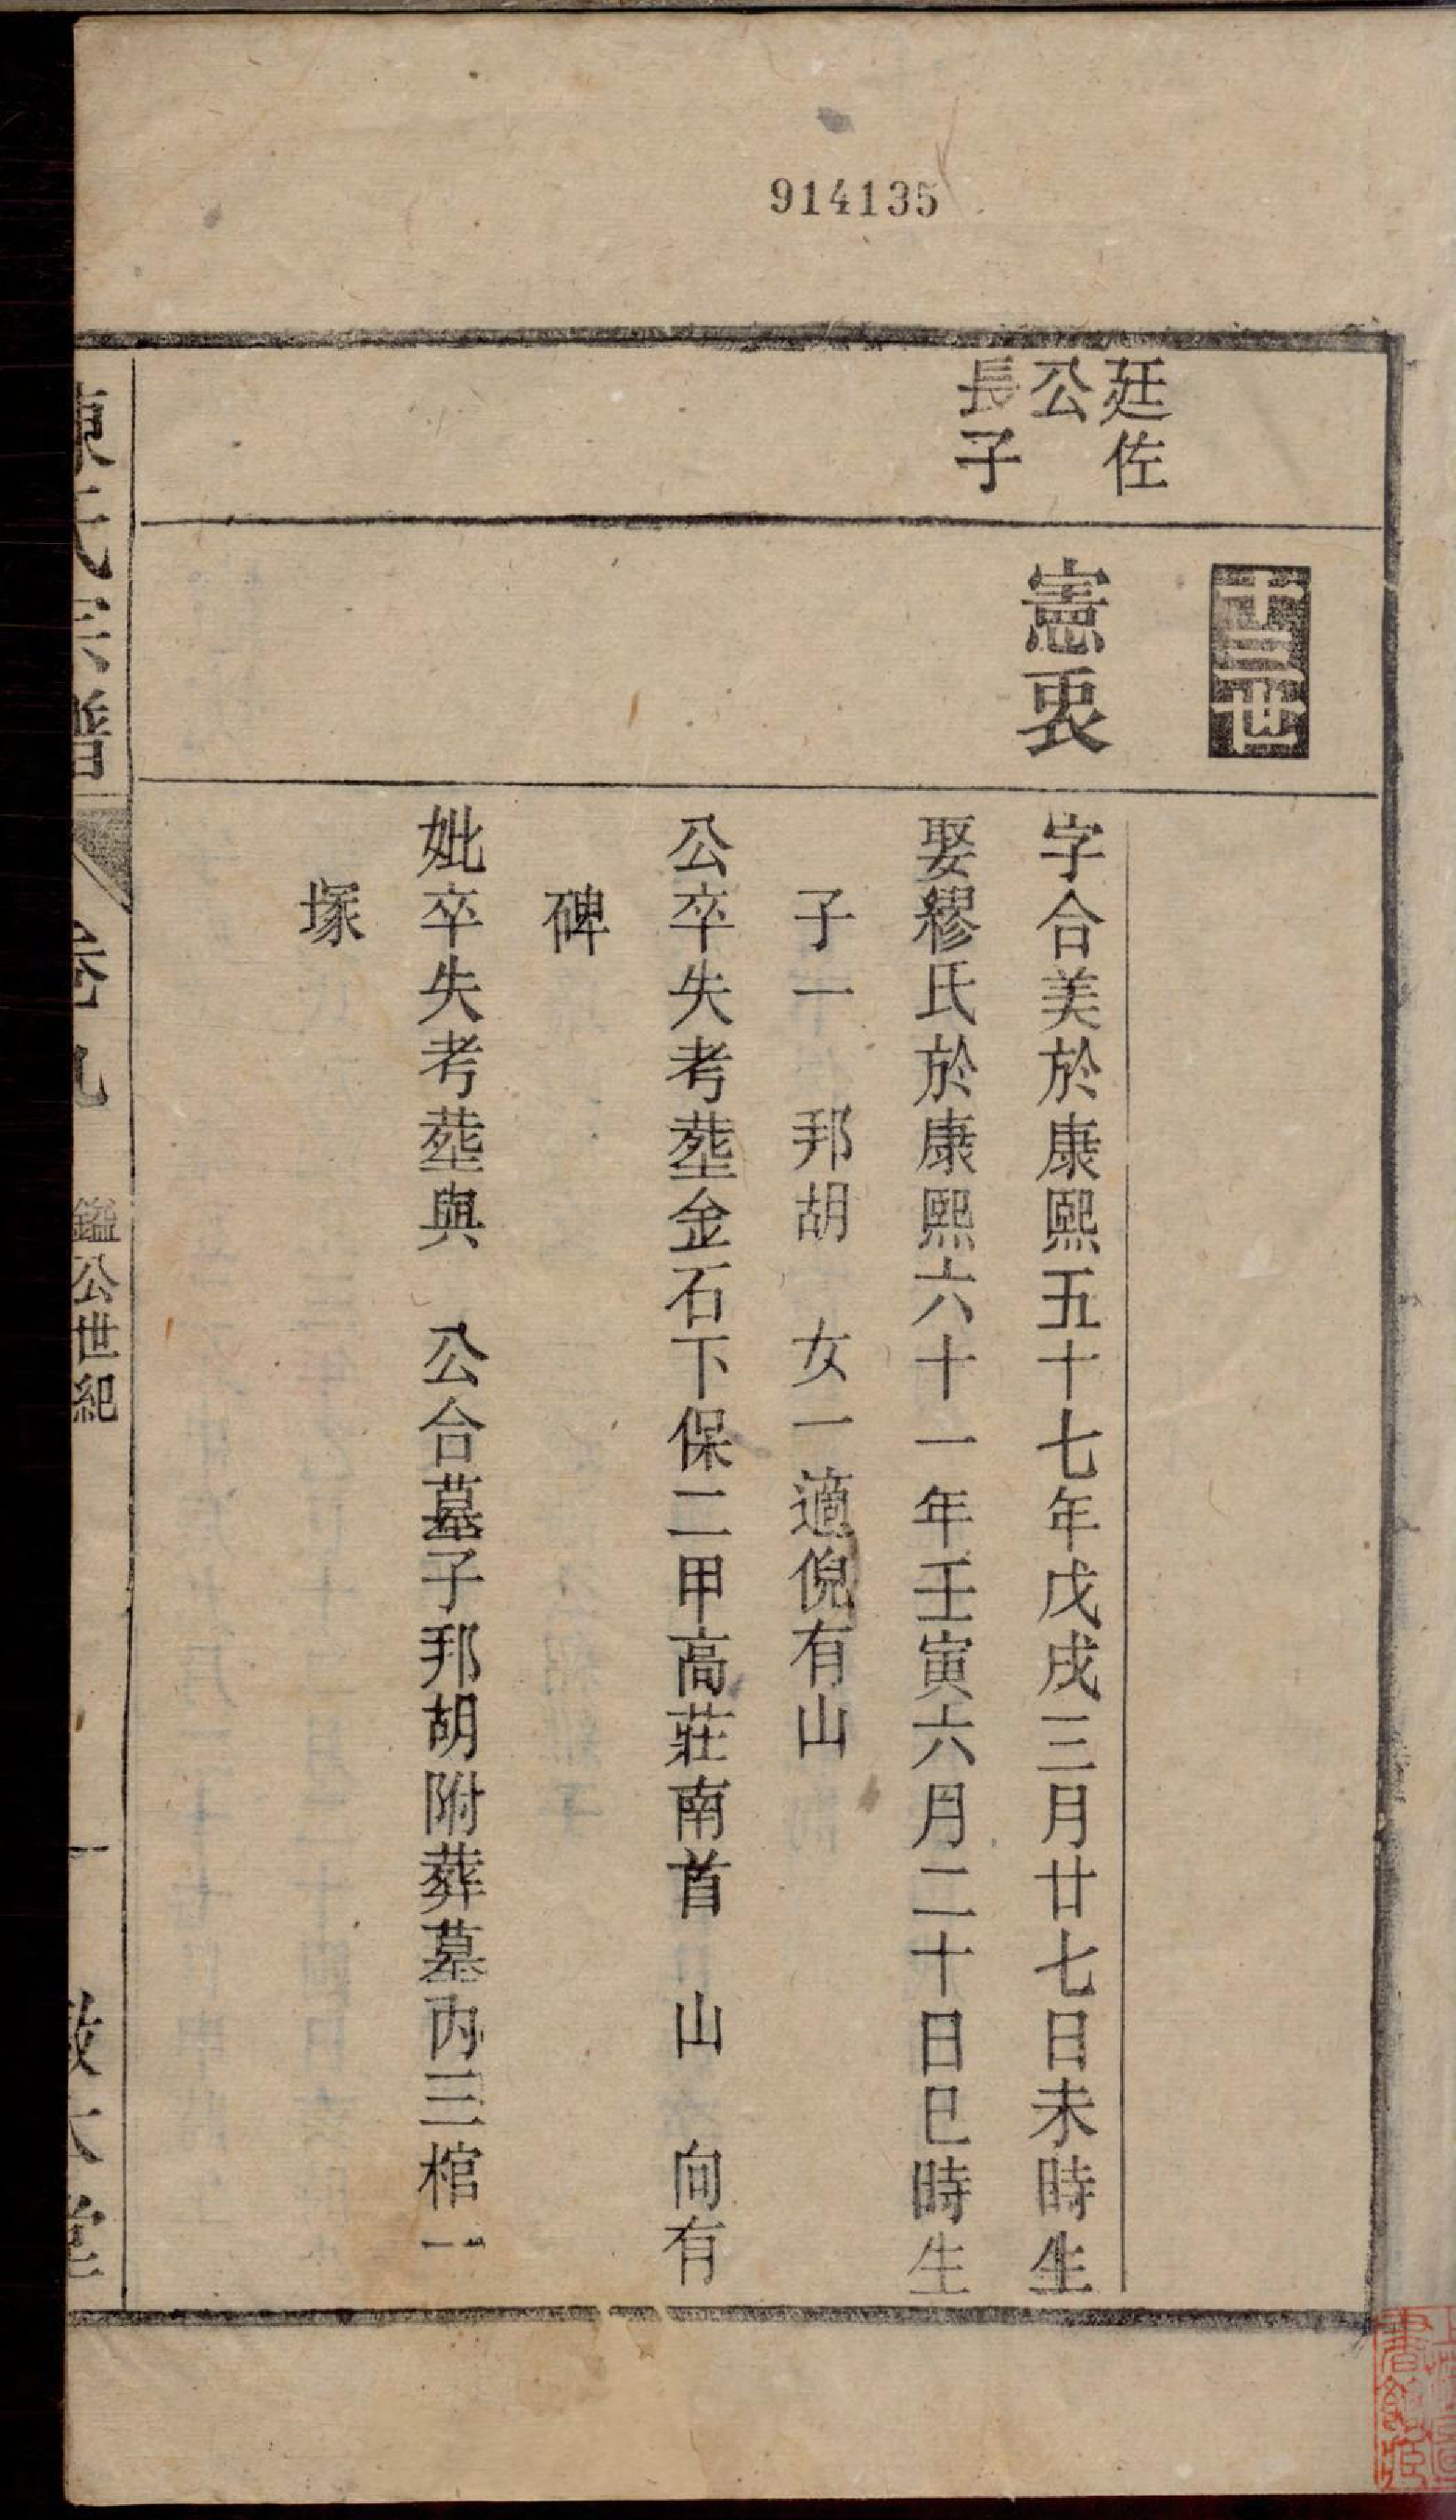 914135
十三世
廷佐
公
長子
憲衷
字合美於康熙五十七年戊戌三月廿七日未時生
娶繆氏於康熙六十一年壬寅六月二十日巳時生
子一　邦胡　女一適倪有山
公卒失考塟金石下保二甲高莊南首　山　向有
碑
妣卒失考塟與　公合墓子邦胡附葬墓內三棺一
塚
氏宗譜
卷九
鑑公世紀
一